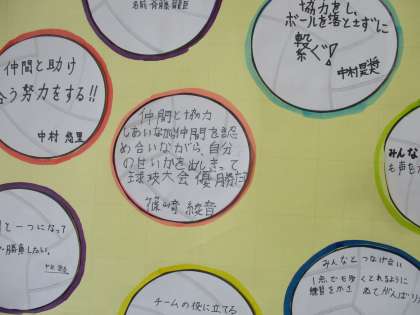 協力をし、
ボールを落とさずに
繋ぐ!
仲間と助け
合う努力をする!!
中村 悠里
仲間と協力
しあいながら仲間を認
め合いながら、自分
のせいかを出しきって
球技大会優勝だ
篠崎 綾音
みんな
も声を
と一つになって
勝負したい。
チームの役に立てる
みんなとつなげ合い
1点でも多くとれるように
練習をかさねてがんばり